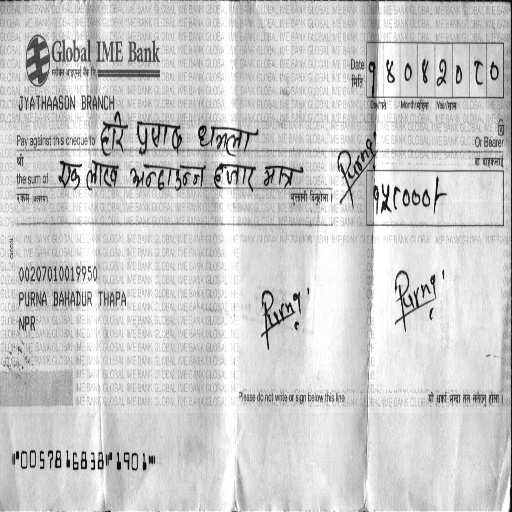 Global IME Bank
ग्लोबल आइएमई बैंक लि.
Date मिति १४०४२०८०
Day/गते Month/महिना Year/साल
JYATHAASON BRANCH
Pay against this cheque to हरि प्रसाद
Or Bearer
श्री वा वाहकलाई
the sum of एक लाख अन्ठाउन्न हजार मात्र
रकम (अक्षरमा) भुक्तानी दिनुहोला ।
१५८०००/-
Purna
00207010019950
PURNA BAHADUR THAPA
NPR
Purna Purna
Please do not write or sign below this line
यो धर्का भन्दा तल नलेख्नु होला ।
"0057816838" 1901"